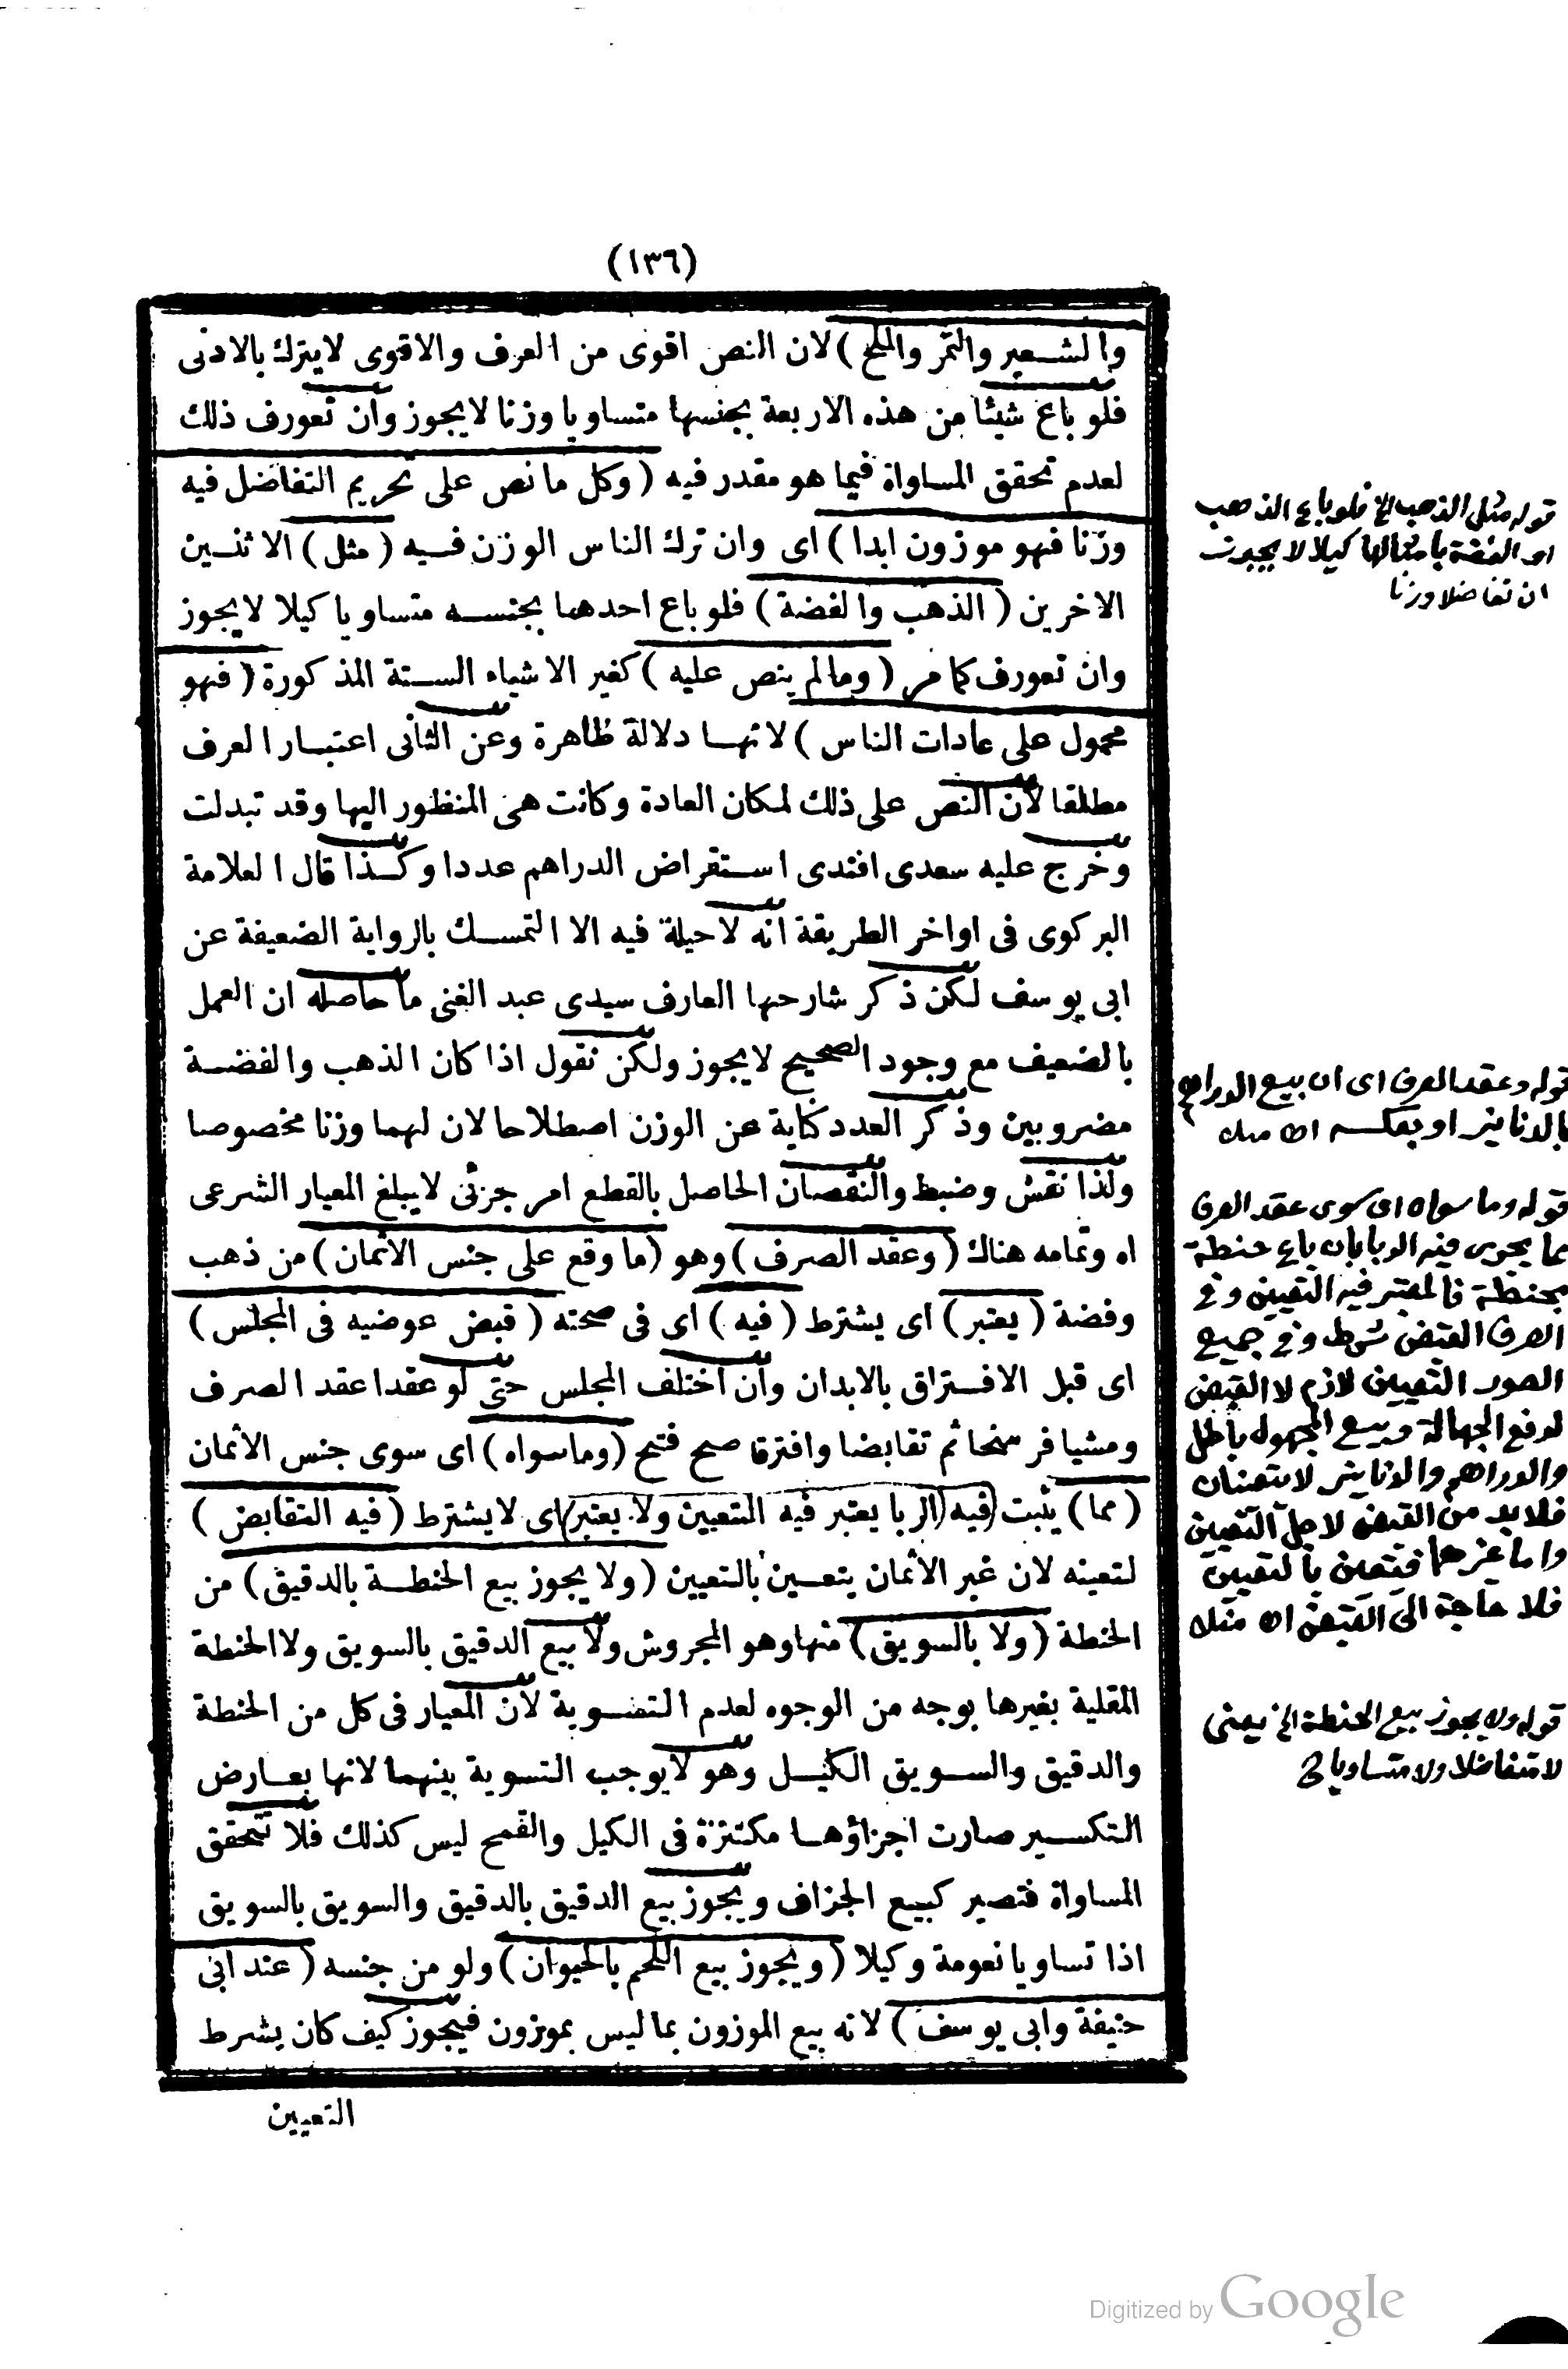 (١٣٦)
والشعير والتمر والملح ) لان النص اقوى من العرف والاقوى لايترك بالادنى
فلو باع شيئا من هذه الاربعة بجنسها متساويا وزنا لايجوز وان تعورف ذلك
لعدم تحقق المساواة فيما هو مقدر فيه ( وكل ما نص على تحريم التفاضل فيه
وزنا فهو موزون ابدا ) اى وان ترك الناس الوزن فيه ( مثل ) الاثنين
الاخرين ( الذهب والفضة ) فلو باع احدهما بجنسه متساويا كيلا لايجوز
وان تعورف كما مر ( ومالم ينص عليه ) كغير الاشياء الستة المذكورة ( فهو
محمول على عادات الناس ) لانها دلالة ظاهرة وعن الثانى اعتبار العرف
مطلقا لان النص على ذلك لمكان العادة وكانت هى المنظور اليها وقد تبدلت
وخرج عليه سعدى افندى استقراض الدراهم عددا وكذا قال العلامة
البركوى فى اواخر الطريقة انه لاحيلة فيه الا التمسك بالرواية الضعيفة عن
ابى يوسف لكن ذكر شارحها العارف سيدى عبد الغنى ما حاصله ان العمل
بالضعيف مع وجود الصحيح لايجوز ولكن نقول اذا كان الذهب والفضة
مضروبين وذكر العدد كناية عن الوزن اصطلاحا لان لهما وزنا مخصوصا
ولذا نقش وضبط والنقصان الحاصل بالقطع امر جزئى لايبلغ المعيار الشرعى
اه وتمامه هناك ( وعقد الصرف ) وهو ( ما وقع على جنس الاثمان ) من ذهب
وفضة ( يعتبر ) اى يشترط ( فيه ) اى فى صحته ( قبض عوضيه فى المجلس )
اى قبل الافتراق بالابدان وان اختلف المجلس حتى لو عقدا عقد الصرف
ومشيا فرسخا ثم تقابضا وافترقا صح فتح ( وماسواه ) اى سوى جنس الاثمان
( مما ) يثبت ( فيه ) الربا يعتبر فيه التعيين ولا يعتبر ) اى لايشترط ( فيه التقابض )
لتعينه لان غير الاثمان يتعين بالتعيين ( ولا يجوز بيع الحنطة بالدقيق ) من
الحنطة ( ولا بالسويق ) منها وهو المجروش ولا بيع الدقيق بالسويق ولا الحنطة
المقلية بغيرها بوجه من الوجوه لعدم التسوية لان المعيار فى كل من الحنطة
والدقيق والسويق الكيل وهو لايوجب التسوية بينهما لانها بعارض
التكسير صارت اجزاؤها مكتنزة فى الكيل والقمح ليس كذلك فلا تتحقق
المساواة فتصير كبيع الجزاف ويجوز بيع الدقيق بالدقيق والسويق بالسويق
اذا تساويا نعومة وكيلا ( ويجوز بيع اللحم بالحيوان ) ولو من جنسه ( عند ابى
حنيفة وابى يوسف ) لانه بيع الموزون بما ليس بموزون فيجوز كيف كان بشرط
التعيين
قوله مثل الذهب الخ فلو باع الذهب
او الفضة بامثالها كيلا لا يجوز
ان تفاضلا وزنا
قوله وعقد الصرف اى ان بيع الدراهم
بالدنانير او بعكسه
قوله وما سواه اى سوى عقد الصرف
مما يجرى فيه الربا بان باع حنطة
بحنطة فالمعتبر فيه التعيين وفى
الصرف القبض شرط وفى جميع
الصور التعيين لازم لا القبض
لدفع الجهالة وبيع المجهول باطل
والدراهم والدنانير لا تتعينان
فلا بد من القبض لاجل التعيين
واما غيرهما فتعين بالتعيين
فلا حاجة الى القبض
قوله ولا يجوز بيع الحنطة الخ يعنى
لا متفاضلا ولا متساويا
Digitized by Google